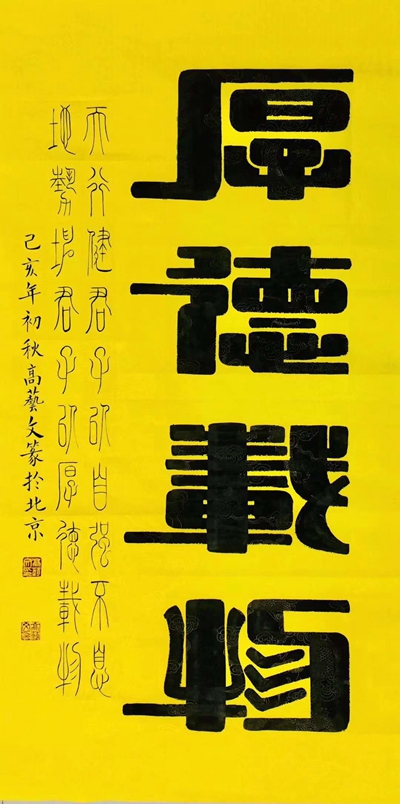 厚德載物
天行健君子以自強不息
地勢坤君子以厚德載物
己亥年初秋高藝文篆於北京